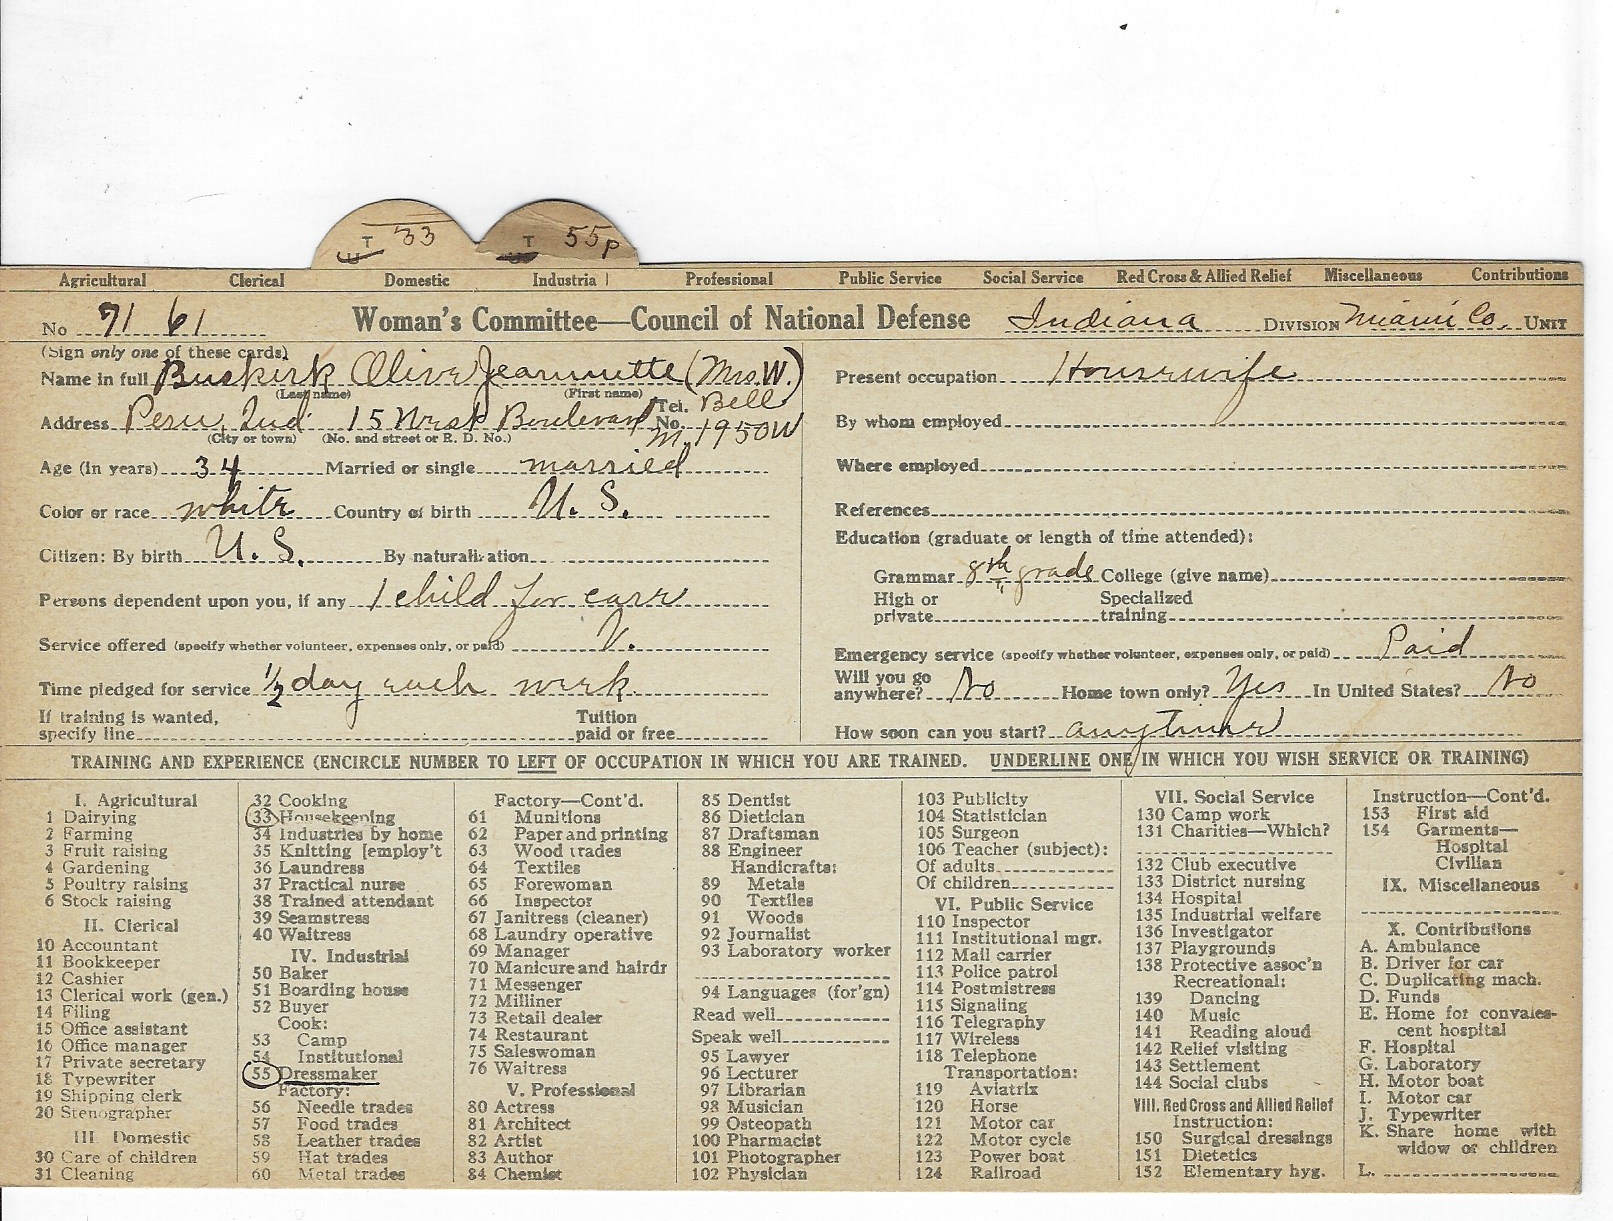 T 33 T 55p
Agricultural Clerical Domestic Industrial Professional Public Service Social Service Red Cross & Allied Relief Miscellaneous Contributions
No 71 61 Woman's Committee—Council of National Defense Indiana DIVISION Miami Co. UNIT
(Sign only one of these cards)
Name in full Buskirk Olive Jeannette (Mrs W.)
(Last name) (First name)
Address Peru, Ind 15 West Boulevard Tel. No. Bell M. 1950W
(City or town) (No. and street or R. D. No.)
Age (in years) 34 Married or single married
Color or race white Country of birth U. S.
Citizen: By birth U. S. By naturalization
Persons dependent upon you, if any 1 child for care
Service offered (specify whether volunteer, expenses only, or paid) V.
Time pledged for service 1/2 day each week
If training is wanted, specify line Tuition paid or free
Present occupation Housewife
By whom employed
Where employed
References
Education (graduate or length of time attended):
Grammar 8th grade College (give name)
High or private Specialized training
Emergency service (specify whether volunteer, expenses only, or paid) Paid
Will you go anywhere? No Home town only? Yes In United States? No
How soon can you start? anytime
TRAINING AND EXPERIENCE (ENCIRCLE NUMBER TO LEFT OF OCCUPATION IN WHICH YOU ARE TRAINED. UNDERLINE ONE IN WHICH YOU WISH SERVICE OR TRAINING)
I. Agricultural
1 Dairying
2 Farming
3 Fruit raising
4 Gardening
5 Poultry raising
6 Stock raising
II. Clerical
10 Accountant
11 Bookkeeper
12 Cashier
13 Clerical work (gen.)
14 Filing
15 Office assistant
16 Office manager
17 Private secretary
18 Typewriter
19 Shipping clerk
20 Stenographer
III Domestic
30 Care of children
31 Cleaning
32 Cooking
33 Housekeeping
34 Industries by home
35 Knitting [employ't
36 Laundress
37 Practical nurse
38 Trained attendant
39 Seamstress
40 Waitress
IV. Industrial
50 Baker
51 Boarding house
52 Buyer
Cook:
53 Camp
54 Institutional
55 Dressmaker
Factory:
56 Needle trades
57 Food trades
58 Leather trades
59 Hat trades
60 Metal trades
Factory—Cont'd.
61 Munitions
62 Paper and printing
63 Wood trades
64 Textiles
65 Forewoman
66 Inspector
67 Janitress (cleaner)
68 Laundry operative
69 Manager
70 Manicure and hairdr
71 Messenger
72 Milliner
73 Retail dealer
74 Restaurant
75 Saleswoman
76 Waitress
V. Professional
80 Actress
81 Architect
82 Artist
83 Author
84 Chemist
85 Dentist
86 Dietician
87 Draftsman
88 Engineer
Handicrafts:
89 Metals
90 Textiles
91 Woods
92 Journalist
93 Laboratory worker
94 Languages (for'gn)
Read well
Speak well
95 Lawyer
96 Lecturer
97 Librarian
98 Musician
99 Osteopath
100 Pharmacist
101 Photographer
102 Physician
103 Publicity
104 Statistician
105 Surgeon
106 Teacher (subject):
Of adults
Of children
VI. Public Service
110 Inspector
111 Institutional mgr.
112 Mail carrier
113 Police patrol
114 Postmistress
115 Signaling
116 Telegraphy
117 Wireless
118 Telephone
Transportation:
119 Aviatrix
120 Horse
121 Motor car
122 Motor cycle
123 Power boat
124 Railroad
VII. Social Service
130 Camp work
131 Charities—Which?
132 Club executive
133 District nursing
134 Hospital
135 Industrial welfare
136 Investigator
137 Playgrounds
138 Protective assoc'n
Recreational:
139 Dancing
140 Music
141 Reading aloud
142 Relief visiting
143 Settlement
144 Social clubs
VIII. Red Cross and Allied Relief
Instruction:
150 Surgical dressings
151 Dietetics
152 Elementary hyg.
Instruction—Cont'd.
153 First aid
154 Garments—
Hospital
Civilian
IX. Miscellaneous
X. Contributions
A. Ambulance
B. Driver for car
C. Duplicating mach.
D. Funds
E. Home for convales-
cent hospital
F. Hospital
G. Laboratory
H. Motor boat
I. Motor car
J. Typewriter
K. Share home with
widow or children
L.